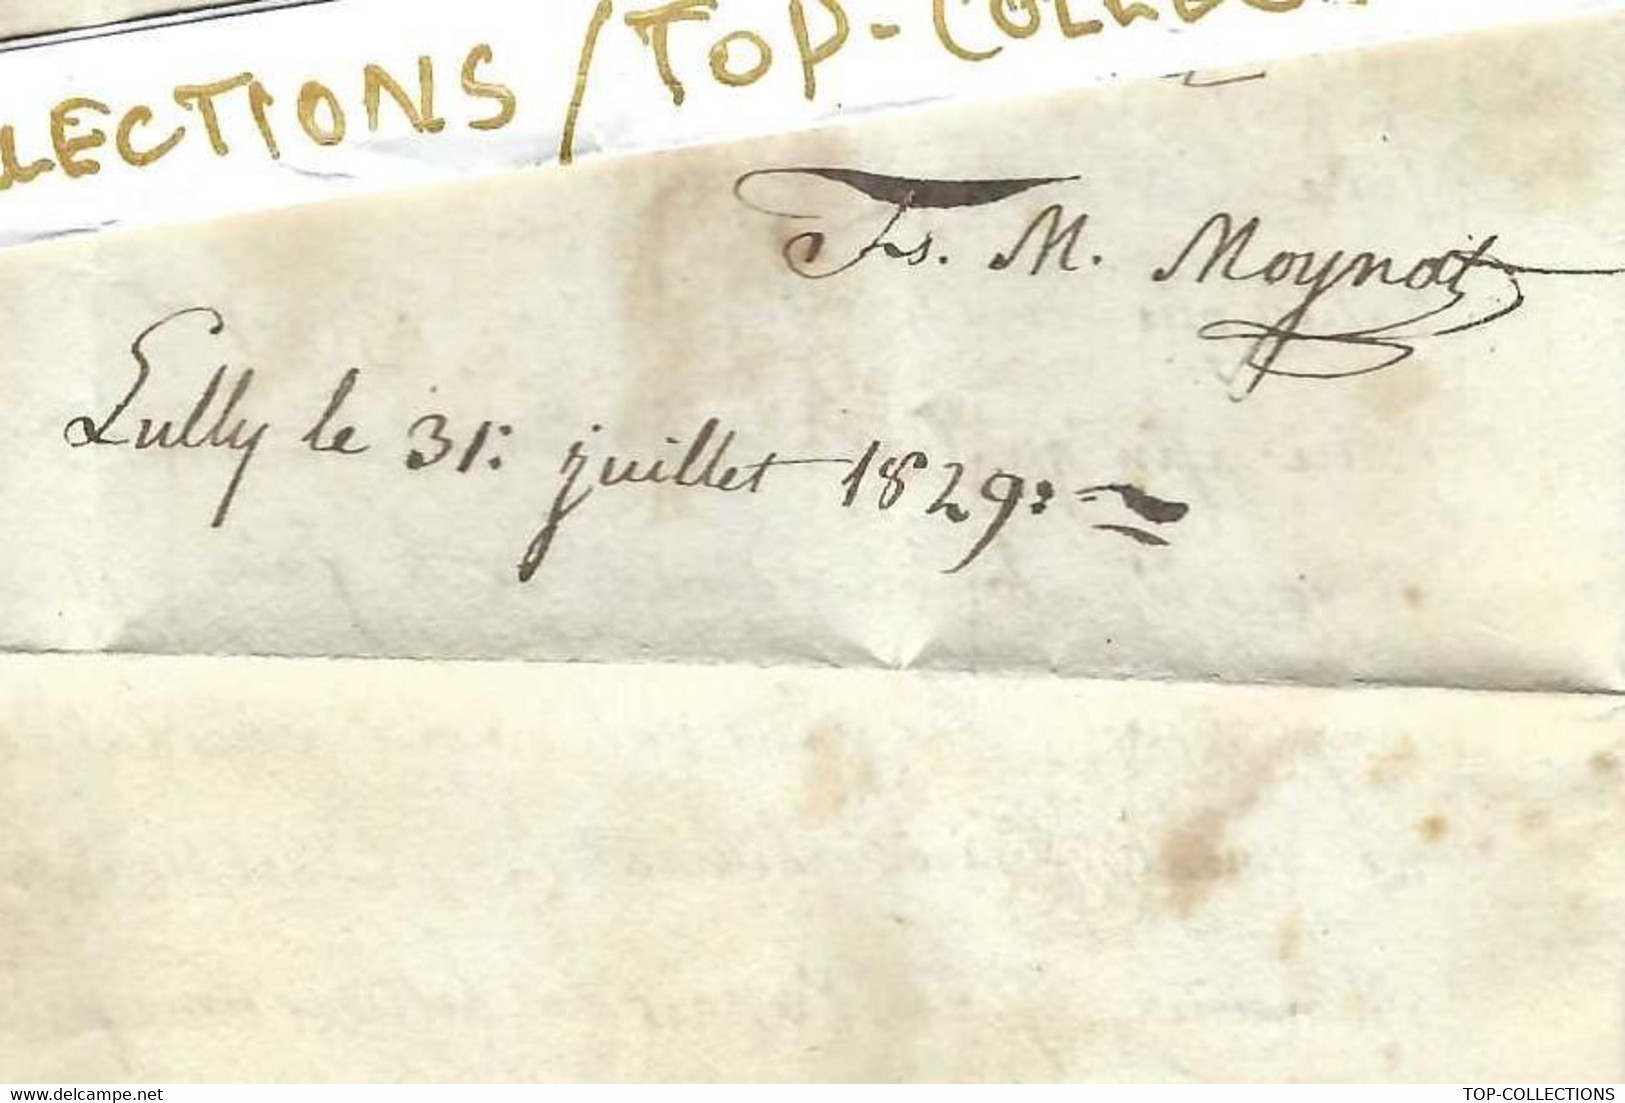 LECTIONS / TOP-COLLEC
Fs. M. Moynat
Lully le 31: juillet 1829:
www.delcampe.net
TOP-COLLECTIONS